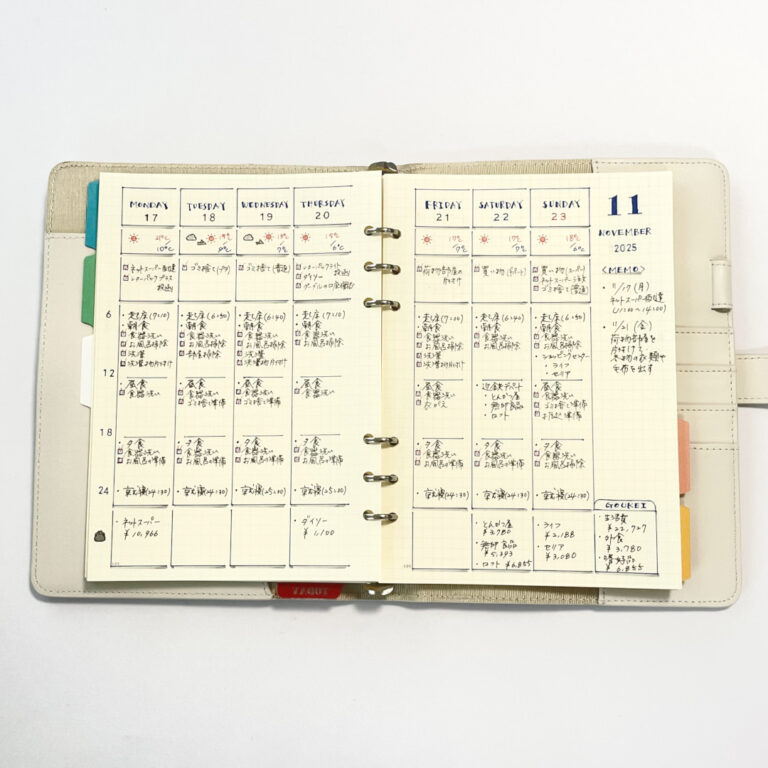 MONDAY
17
10℃
ネットスーパー
・起床(7:10)
・朝食
食器洗い
お風呂掃除
洗濯
・昼食
食器洗い
・夕食
食器洗い
お風呂の準備
・就寝(24:30)
・ネットスーパー
¥10,966
TUESDAY
18
9℃
・起床(6:50)
・朝食
食器洗い
お風呂掃除
・昼食
食器洗い
ゴミ捨て準備
・夕食
食器洗い
お風呂の準備
・就寝(24:30)
WEDNESDAY
19
13℃
7℃
ゴミ捨て(普通)
・起床(6:40)
・朝食
食器洗い
お風呂掃除
洗濯
・昼食
食器洗い
ゴミ捨て準備
・夕食
食器洗い
お風呂の準備
・就寝(25:30)
THURSDAY
20
15℃
6℃
ダイソー
・起床(7:10)
・朝食
食器洗い
お風呂掃除
・昼食
食器洗い
・夕食
食器洗い
お風呂の準備
・就寝(25:30)
・ダイソー
¥1,100
6
12
18
24
FRIDAY
21
17℃
7℃
荷物部屋の
片付け
・起床(7:00)
・朝食
食器洗い
お風呂掃除
洗濯
・昼食
食器洗い
・夕食
食器洗い
お風呂の準備
・就寝(24:30)
SATURDAY
22
17℃
7℃
買い物(デパート)
・起床(6:50)
・朝食
食器洗い
お風呂掃除
・近鉄デパート
・とんかつ屋
・無印良品
・ロフト
・夕食
食器洗い
お風呂の準備
・就寝(24:30)
・とんかつ屋
¥3,780
・無印良品
¥5,393
・ロフト ¥6,855
SUNDAY
23
18℃
6℃
買い物(スーパー)
ゴミ捨て(普通)
・起床(6:50)
・朝食
食器洗い
お風呂掃除
・ショッピングセンター
・ライフ
・セリア
・昼食
食器洗い
ゴミ捨て準備
・夕食
食器洗い
お風呂掃除
・就寝(24:30)
・ライフ
¥2,188
・セリア
¥3,080
11
NOVEMBER
2025
<MEMO>
・11/17(月)
ネットスーパー配達
・11/21(金)
荷物部屋を
片付けて
冬物の衣類や
毛布を出す
GOUKEI
・生活費
¥22,727
・外食
¥3,780
・嗜好品
¥6,855